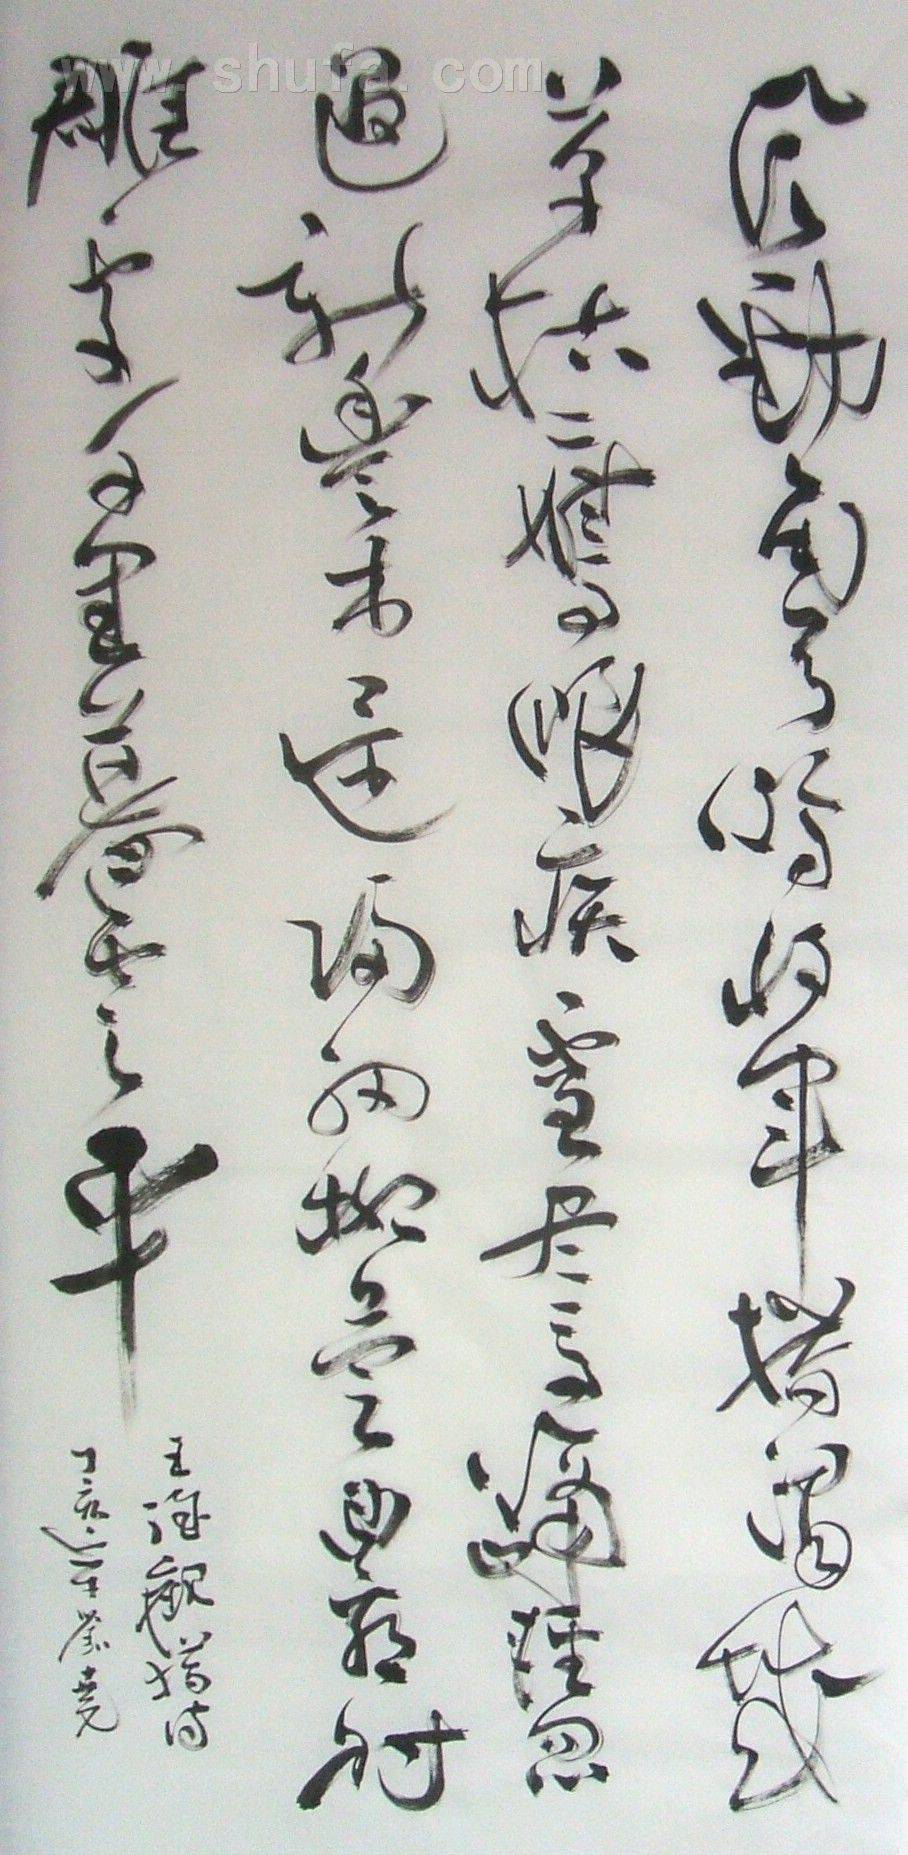 www.shufa.com
風勁角弓鳴將軍獵渭城
草枯鷹眼疾雪盡馬蹄輕忽
過新豐市還歸細柳營回看射
雕處千里暮雲平
王維觀獵詩
丁亥年